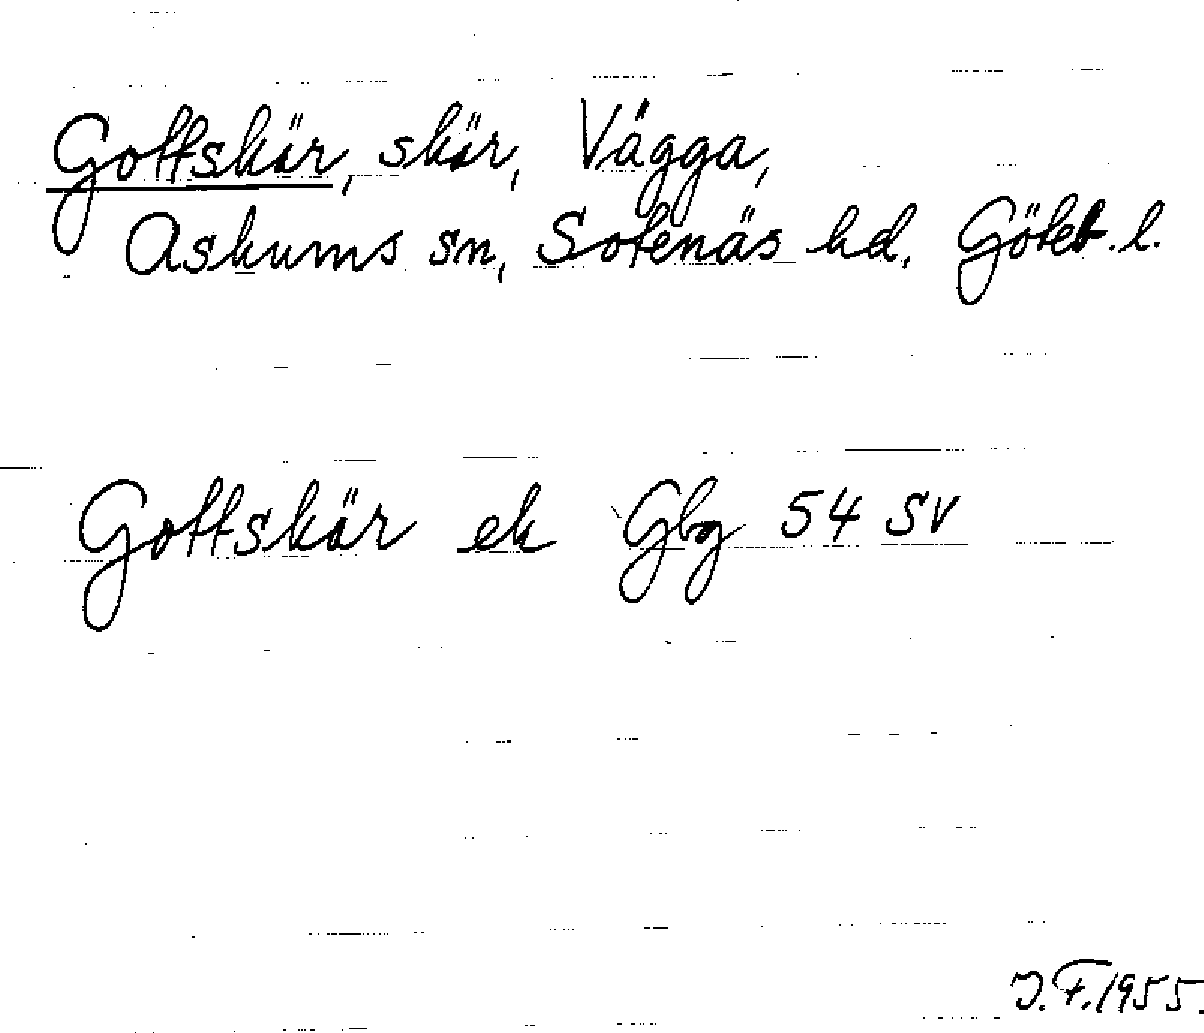 Gottskär, skär, Vägga,
Askums sn, Sotenäs hd. Göteb. l.
Gottskär ek Gbg 54 SV
J.F. 1955.